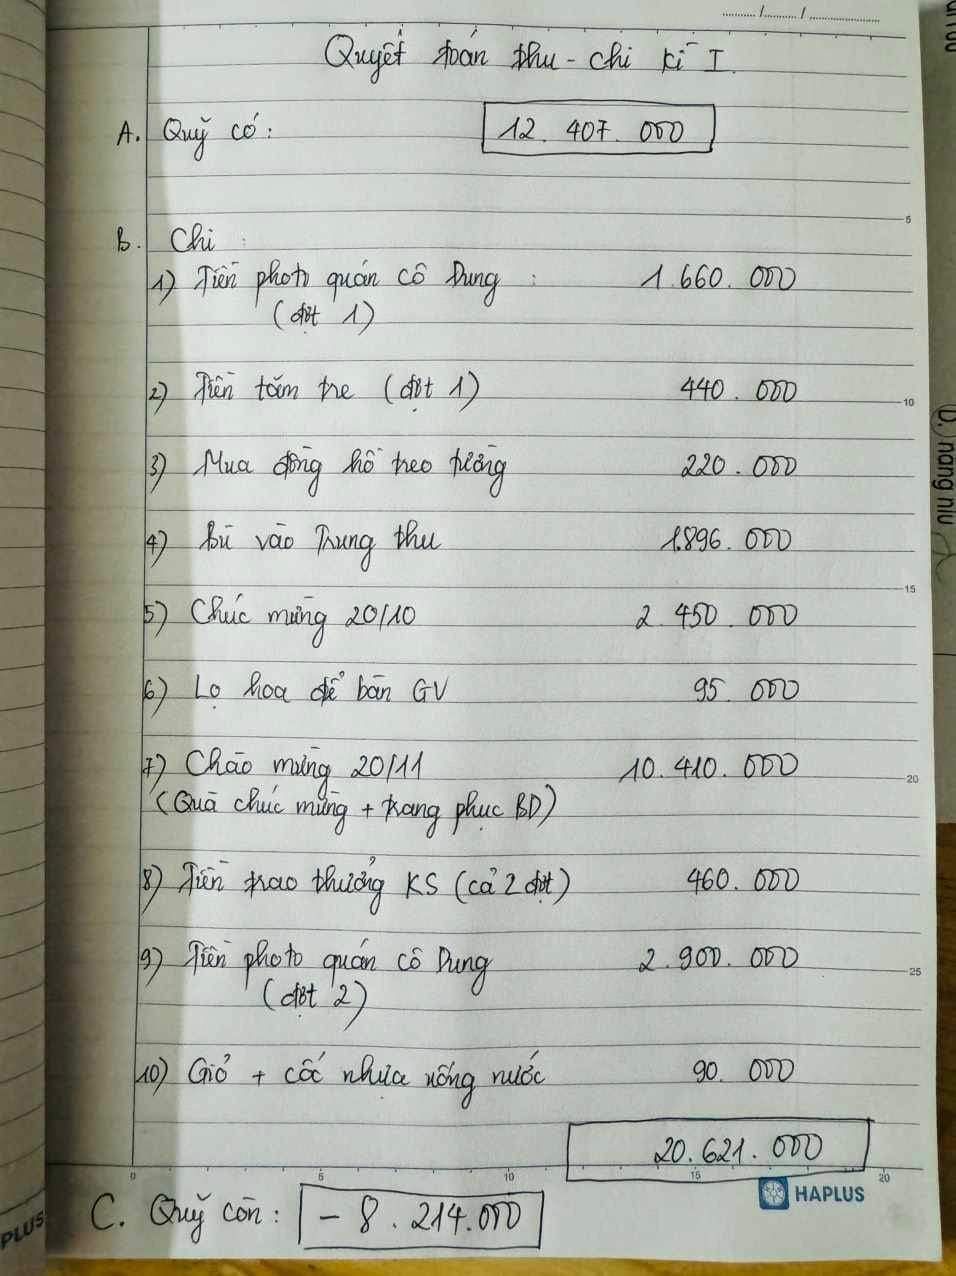 Quyết toán thu - chi kì I
A. Quỹ có : 12. 407. 000
B. Chi :
1) Tiền photo quán cô Dung : 1.660. 000
(đợt 1)
2) Tiền tăm tre (đợt 1) 440. 000
3) Mua đồng hồ treo tường 220. 000
4) Bù vào Trung thu 1.896. 000
5) Chúc mừng 20/10 2. 450. 000
6) Lọ hoa để bàn GV 95. 000
7) Chào mừng 20/11 10. 410. 000
(Quà chúc mừng + trang phục BD)
8) Tiền trao thưởng KS (cả 2 đợt) 460. 000
9) Tiền photo quán cô Dung 2. 900. 000
(đợt 2)
10) Giỏ + cốc nhựa uống nước 90. 000
20. 621. 000
C. Quỹ còn : - 8. 214.000
HAPLUS
PLUS
D. nâng niu
5
10
15
20
25
0 5 10 15 20